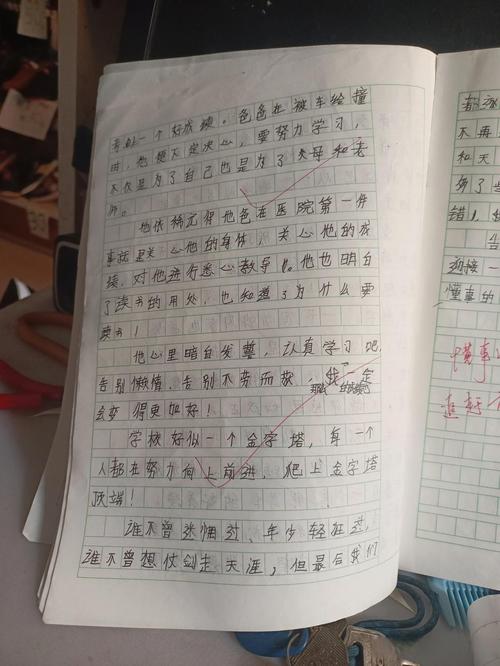 考似一个好成绩。爸爸在被车给撞
由，他便下定决心，要努力学习，
不仅是为了自己也是为了父母和老
师。
他依稀记得他爸在医院第一件
事就是关心他的身体，关心他的成
绩，对他进行悉心教导。他也明白
了读书的用处，也知道了为什么要
读书！
他心里暗自发誓，认真学习吧，
告别懒惰，告别不劳而获，我一定
会变得更加好！
学校好似一个金字塔，每一个
人都在努力向上前进，爬上金字塔
顶端！
谁不曾张惘过，年少轻狂过，
谁不曾想仗剑走天涯，但最后我们
都
不再
和天
错，
迎接一
懂事的
懂事